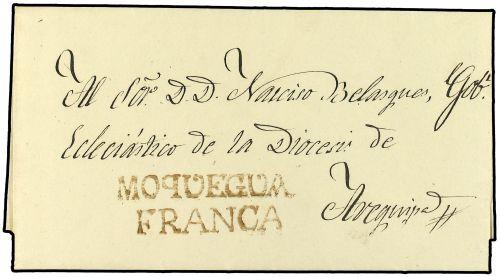 Al Sor. D. D. Narciso Belasques, Gobr.
Ecleciástico de la Diocesis de
Arequipa
MOQUEGUA
FRANCA